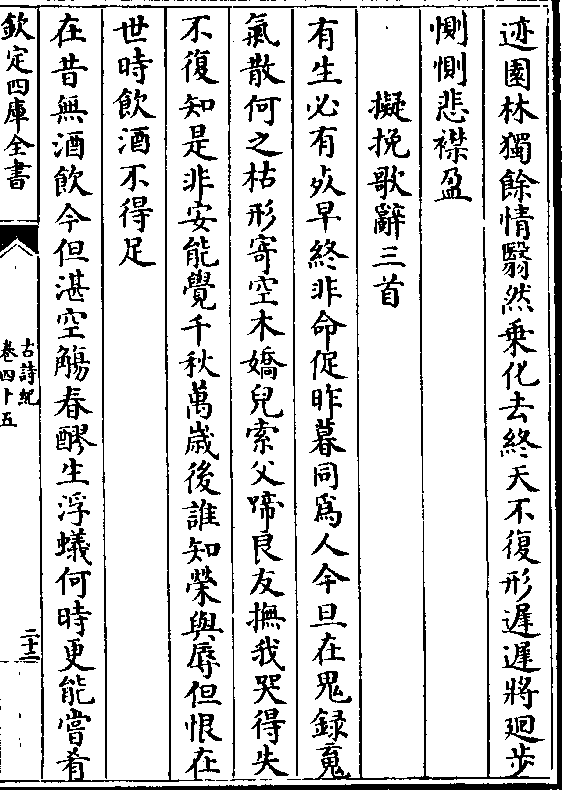 迹園林獨餘情翳然乗化去終天不復形遲遲將廻步
惻惻悲襟盈
擬挽歌辭三首
有生必有歿早終非命促昨暮同爲人今旦在鬼録䰟
氣散何之枯形寄空木嬌兒索父啼良友撫我哭得失
不復知是非安能覺千秋萬歳後誰知榮與辱但恨在
世時飲酒不得足
在昔無酒飲今但湛空觴春醪生浮蟻何時更能嘗肴
欽定四庫全書
古詩紀
卷四十五
二十三